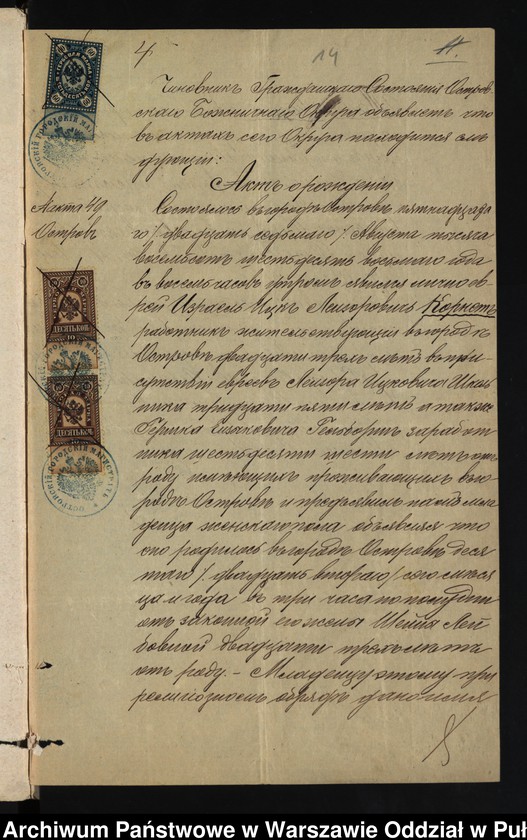 4
14
Чиновникъ Гражданскаго Состоянія Остров-
скаго Божничнаго Округа объявляетъ что
въ актахъ сего Округа находится слѣ-
дующій:
Актъ о рожденіи
№ акта 49
Островъ
Состоялось въ городѣ Островѣ, пятнадцата-
го /двадцать седьмаго/ Августа тысяча
восемьсотъ шестьдесятъ восьмаго года
въ восемь часовъ утромъ явился лично ев-
рей Израель Ицекъ Лейзоровичъ Корнетъ
работникъ жительствующій въ городѣ
Островѣ двадцати трехъ лѣтъ въ при-
сутствіи евреевъ Лейзора Ицковича Школь-
ника тридцати пяти лѣтъ а также
Герша заработ-
ника шестьдесяти шести лѣтъ отъ
роду имѣющихъ проживающихъ въ го-
родѣ Островѣ и предъявилъ намъ мла-
денца женскаго пола объявляя что
оно родилось въ городѣ Островѣ деся-
таго /двадцать втораго/ сего мѣся-
ца и года въ три часа по полудни
отъ законной его жены Шейны Лей-
бовной двадцати трехъ лѣтъ
отъ роду. – Младенцу этому при
религіозномъ обрядѣ дано имя
ДЕСЯТЬ КОП.
10
ДЕСЯТЬ КОП.
ОСТРОВСКІЙ ГОРОДСКІЙ МАГИСТРАТЪ
Archiwum Państwowe w Warszawie Oddział w Puł